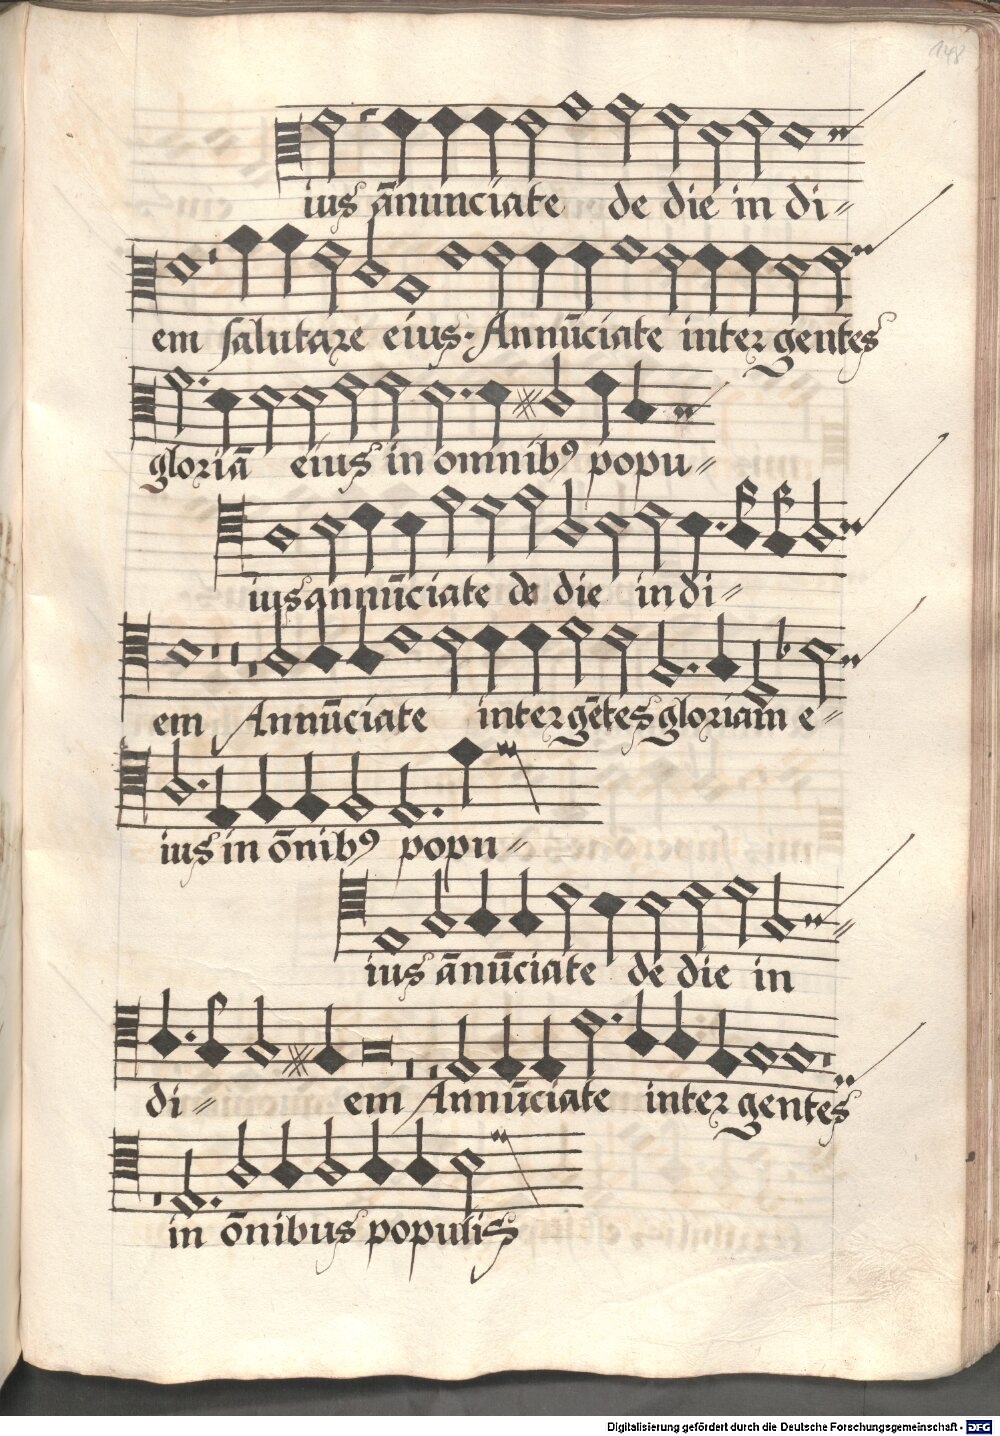 148
ius ān̄unciate de die in di⸗
em salutare eius· Annūciate inter gentes
gloriā eius in omnibꝰ popu⸗
ius annūciate de die in di⸗
em Annūciate inter gētes gloriam e⸗
ius in ōnibꝰ popu⸗
ius ānūciate de die in
di⸗ em Annūciate inter gentes
in ōnibus populis
Digitalisierung gefördert durch die Deutsche Forschungsgemeinschaft - DFG